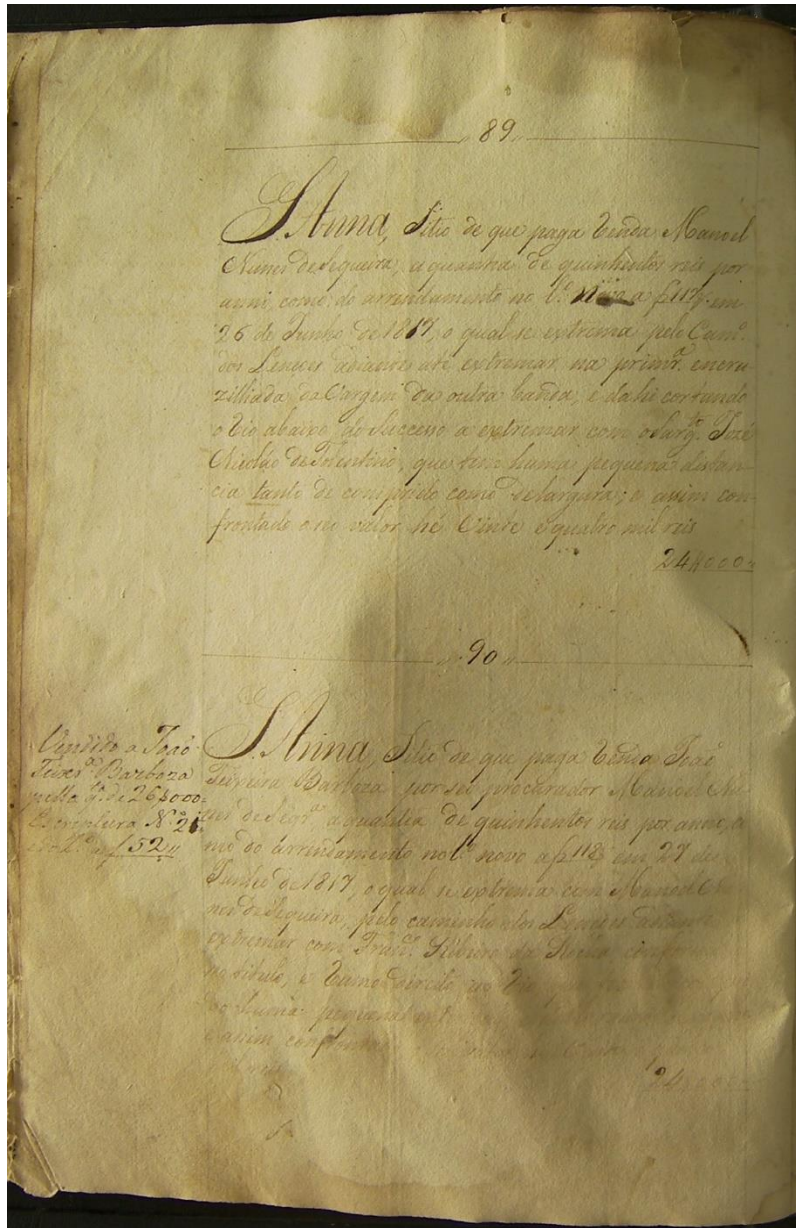 89
S. Anna, Sitio de que paga Renda Manoel
Nunes de Sequeira, a quantia de quinhentos reis por
anno, como do arrendamento no L.º Novo a f 117 em
26 de Junho de 1817, o qual se extrema pelo Cam.º
dos Lencoes adiante até extremar na primr.ª encru-
zilhada da Vargem da outra banda, e dahi cortando
o Rio abaixo do Successo a extremar com o Sarg.to José
Nicoláo de Tolentino, que tem huma pequena distan-
cia tanto de comprido como de largura; e assim con-
frontado o seu valor hé Vinte e quatro mil reis
24$000
90
Vendido a João
Teixr.ª Barboza
pella q.ª de 26$000
Escriptura N.º 21
f 52
S. Anna, Sitio de que paga Renda João
Teixeira Barboza, por seu procurador Manoel Nu-
nes de Seqr.ª a quantia de quinhentos reis por anno, co-
mo do arrendamento no L.º novo a f 118 em 27 de
Junho de 1817, o qual se extrema com Manoel Nu-
nes de Sequeira, pelo caminho dos Lencoes adiante
extremar com Fran.co Ribeiro da Rocha
no titulo, e rumo direito ao Rio que
huma pequena
e assim
24$000